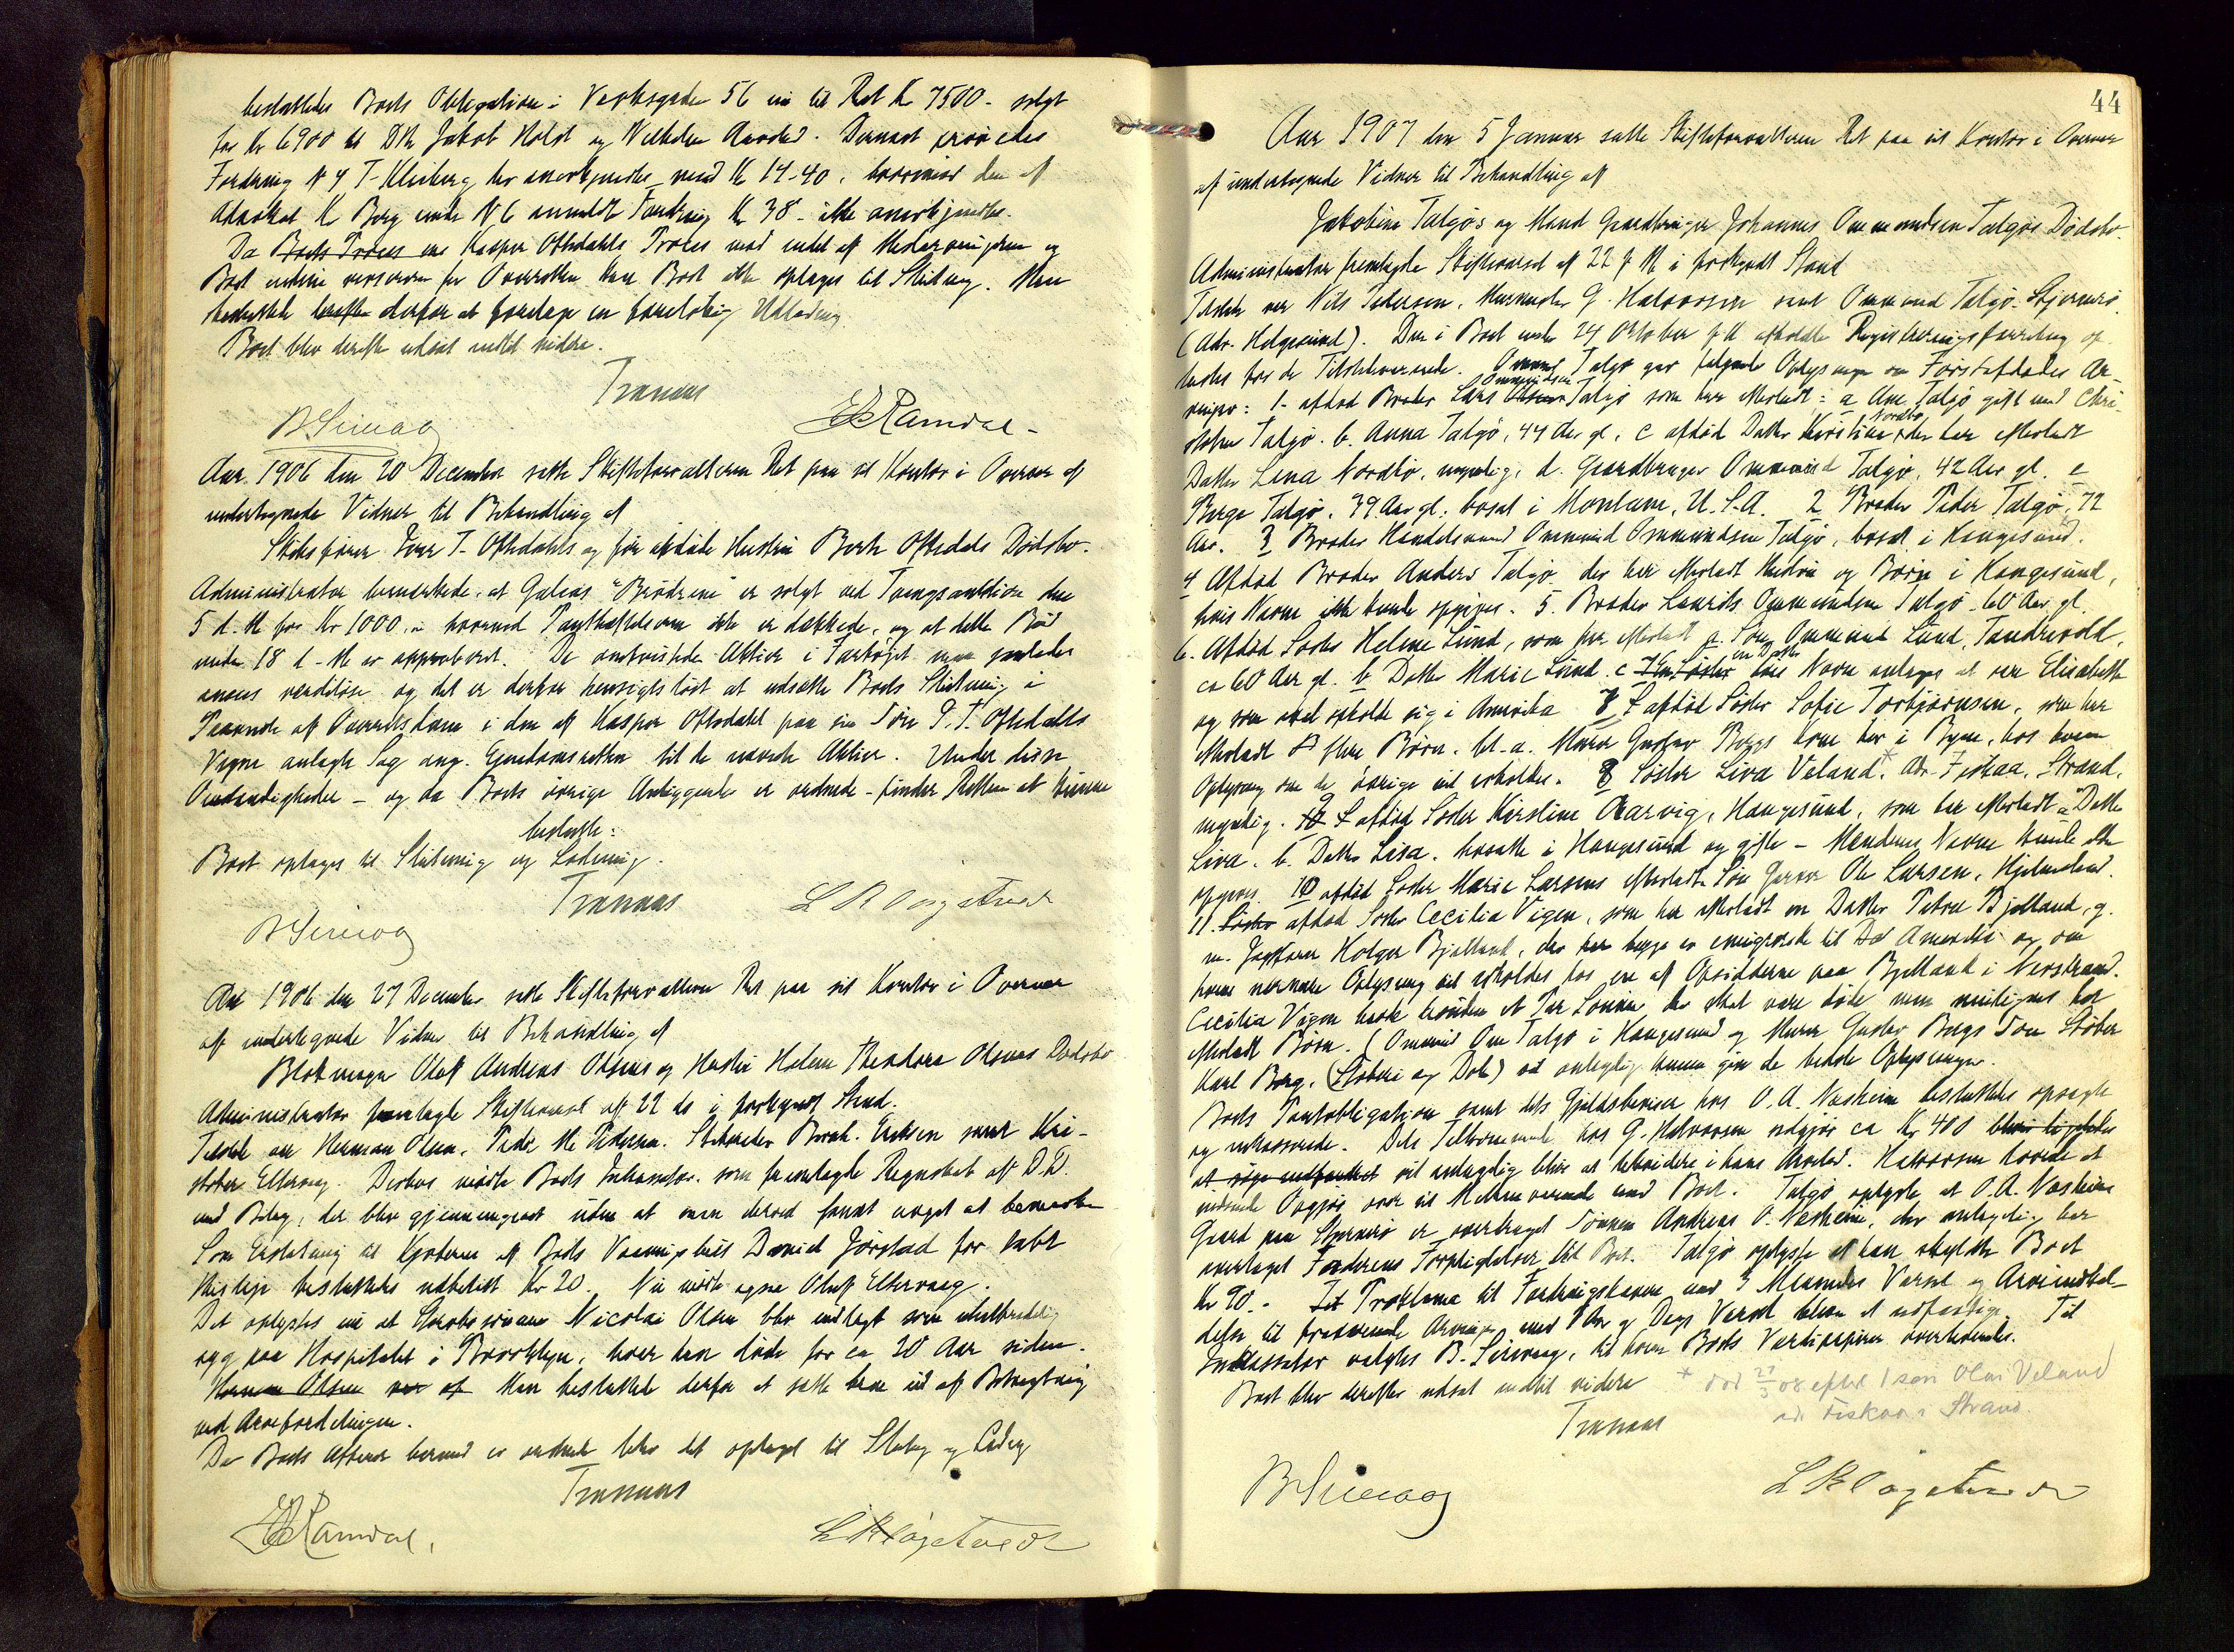 besluttedes Boets Obligation i Verksgaden 56 til Kr 7500- solgt
for Kr 6900 til DHr Jakob Holst og Vilhelm Aarsted. Dernæst prøvedes
Fordring N 4 T. Kleiberg der anerkjendtes med Kr 14-40, hvorimod den af
Advokat K Berg under N 6 anmeldte Fordring Kr 38- ikke anerkjendtes.
Da Boets Proces Kasper Oftedahls Proces med endel af Medarvingerne og
Boet endnu verserer for Overretten kan Boet ikke optages til Slutning. Man
besluttede derfor at foretage en foreløbig Udlodning
Boet blev derefter udsat indtil videre.
Tranaas
B Sirevaag
E Ramdal-
Aar 1906 den 20 December satte Skifteforvalteren Ret paa sit Kontor i Overvær af
undertegnede Vidner til Behandling af
Skibsfører T- Oftedahls og før afdøde Hustru Berte Oftedals Dødsbo.
Administrator bemærkede at Galeas "Brødrene" er solgt ved Tvangsauktion den
5 d.M for Kr 1000, hvorved Panthæftelserne ikke er dækkede, og at dette Bud
under 18 d-M er approberet. De omtvistede Aktier i Fartøiet maa saaledes
ansees værdiløse og det er derfor hensigtsløst at udsætte Boets Slutning i
Paavente af Overretsdom i den af Kasper Oftedahl paa sin Søn P. T. Oftedahls
Vegne anlagte Sag ang. Eiendomsretten til de nævnte Aktier. Under disse
Omstændigheder - og da Boets øvrige Anliggender er ordnede - finder Retten at kunne
beslutte:
Boet optages til Slutning og Lodning.
Tranaas
B Sirevaag
L R Løgstvedt
Aar 1906 den 27 December satte Skifteforvalteren Ret paa sit Kontor i Overvær
af undertegnede Vidner til Behandling af
Blokmager Oluf Andreas Olsens og Hustru Helene Theodora Olsens Dødsbo
Administrator fremlagte Skiftevarsel af 22 ds i forkyndt Stand.
Tilstede var Herman Olsen, Peder M Pedersen. Skibsreder Bernh. Eriksen samt Kri-
stofer Eltervaag. Desuden mødte Boets Inkassator som fremlagte Regnskab af D.D.
med Bilag, der blev gjennemgaaet uden at man derved fandt noget at bemærke
Som Erstatning til Kjøberen af Boets Vaaningshus Daniel Jørstad for tabt
Husleie besluttedes udbetalt Kr 20. Nu mødte ogsaa Oluf Eltervaag.
Det oplystes nu at Nicolai Olsen blev indlagt som uhelbredelig
syg paa Hospitalet i Brooklyn, hvor han døde for ca 20 Aar siden.
Herman Olsen var af Man besluttede derfor at sætte ham ud af Betragtning
ved Arvefordelingen.
Da Boets Affærer hermed er ordnede blev det optaget til Slutng og Lodng
Tranaas
E Ramdal.
L R Løgstvedt
44
Aar 1907 den 5 Januar satte Skifteforvalteren Ret paa sit Kontor i Overvær
af undertegnede Vidner til Behandling af
Jakobine Talgøs og Mand Gaardbruger Johannes Ommundsen Talgøs Dødsbo.
Administrator fremlagde Skiftevarsel af 22 f M i forkyndt Stand
Tilstede var Nils Pedersen, G. Halvorsen samt Ommund Talgø, Stjernerø.
(Adr. Helgøsund). Den i Boet under 24 Oktober f A afholdte Registreringsforretning op-
læstes for de Tilstedeværende. Ommund Talgø gav følgende Oplysninger om Førstafdødes Ar-
vinger: 1- afdød Broder Lars Ommundsen Talgø som har efterladt: a Ane Talgø gift med Chri-
stofer Talgø. b. Anna Talgø, 44 Aar gl, c afdød Datter Kirstine Nordbø der har efterladt
Datter Lena Nordbø, myndig, d. Gaardbruger Ommund Talgø, 42 Aar gl. e
Berge Talgø, 39 Aar gl. bosat i Montana, U.S.A. 2 Broder Peder Talgø, 72
Aar. 3 Broder Handelsmand Ommund Ommundsen Talgø, bosat i Haugesund.
4 Afdød Broder Anders Talgø der har efterladt Hustru og Børn i Haugesund,
hvis Navne ikke kunde opgives. 5. Broder Laurits Ommundsen Talgø, 60 Aar gl.
6. Afdød Søster Helene Lund, som har efterladt a. Søn Ommund Lund, Tendrevold,
ca 60 Aar gl. b Datter Marie Lund. c en Datter hvis Navn antages at være Elisabeth
og som skal opholde sig i Amerika 7 afdød Søster Sofie Torbjørnsen, som har
efterladt flere Børn, bl-a. Murer Gustav Bøggs Kone her i Byen, hos hvem
Oplysning om de øvrige vil erholdes. 8 Søster Liva Veland,* adr. Fiskaa, Strand,
myndig. 9 afdød Søster Kirstine Aarvig, Haugesund, som har efterladt a Datter
Liva. b. Datter Lisa. bosatte i Haugesund og gifte - Mændenes Navne kunde ikke
opgives. 10 afdød Søster Marie Larsens efterladte Søn Garver Ole Larsen, Hjelmeland.
11. Søster afdød Søster Cecilia Vigen, som har efterladt en Datter Petra Bjelland, g.
m. Holger Bjelland, der begge er emigrerede til Amerika og om
hvem nærmere Oplysning vil erholdes hos en af Opsidderne paa Bjelland i Nerstrand.
Cecilia Vigen havde desuden et Par Sønner der skal være døde men muligens har
efterladt Børn. (Ommund Om Talgø i Haugesund og Murer Gustav Bøgs Søn Støber
Karl Bøgs, (Støberi og Dok) vil antagelig kunne give de bedste Oplysninger.
Boets Pantobligation samt dets Gjeldsbeviser hos O. A. Nesheim besluttedes opsagte
og inkasserede. Dets Tilgodehavende hos G. Halvorsen udgjør ca Kr 400
at søge indfordret vil antagelig blive at Halvorsen lovede at
indsende Opgjør over sit Mellemværende med Boet. Talgø oplyste at O. A. Nesheims
Gaard paa Stjernerø er overdraget Sønnen Andreas O. Nesheim, der antagelig har
overtaget Faderens Forpligtelser til Boet. Talgø oplyste at han skyldte Boet
Kr 90.- Proklama til Fordringshavere med 3 Maaneders Varsel og Arveindkal-
delse til fraværende Arvinger med 1 Aar og Dags Varsel at udfærdige. Til
Inkassator valgtes B. Sirevaag, til hvem Boets Værdipapirer overleveredes.
Boet blev derefter udsat indtil videre
* død 27/3 08 efterl 1 søn Olai Veland
adr Fiskaa i Strand
Tranaas
B Sirevaag
L R Løgstvedt